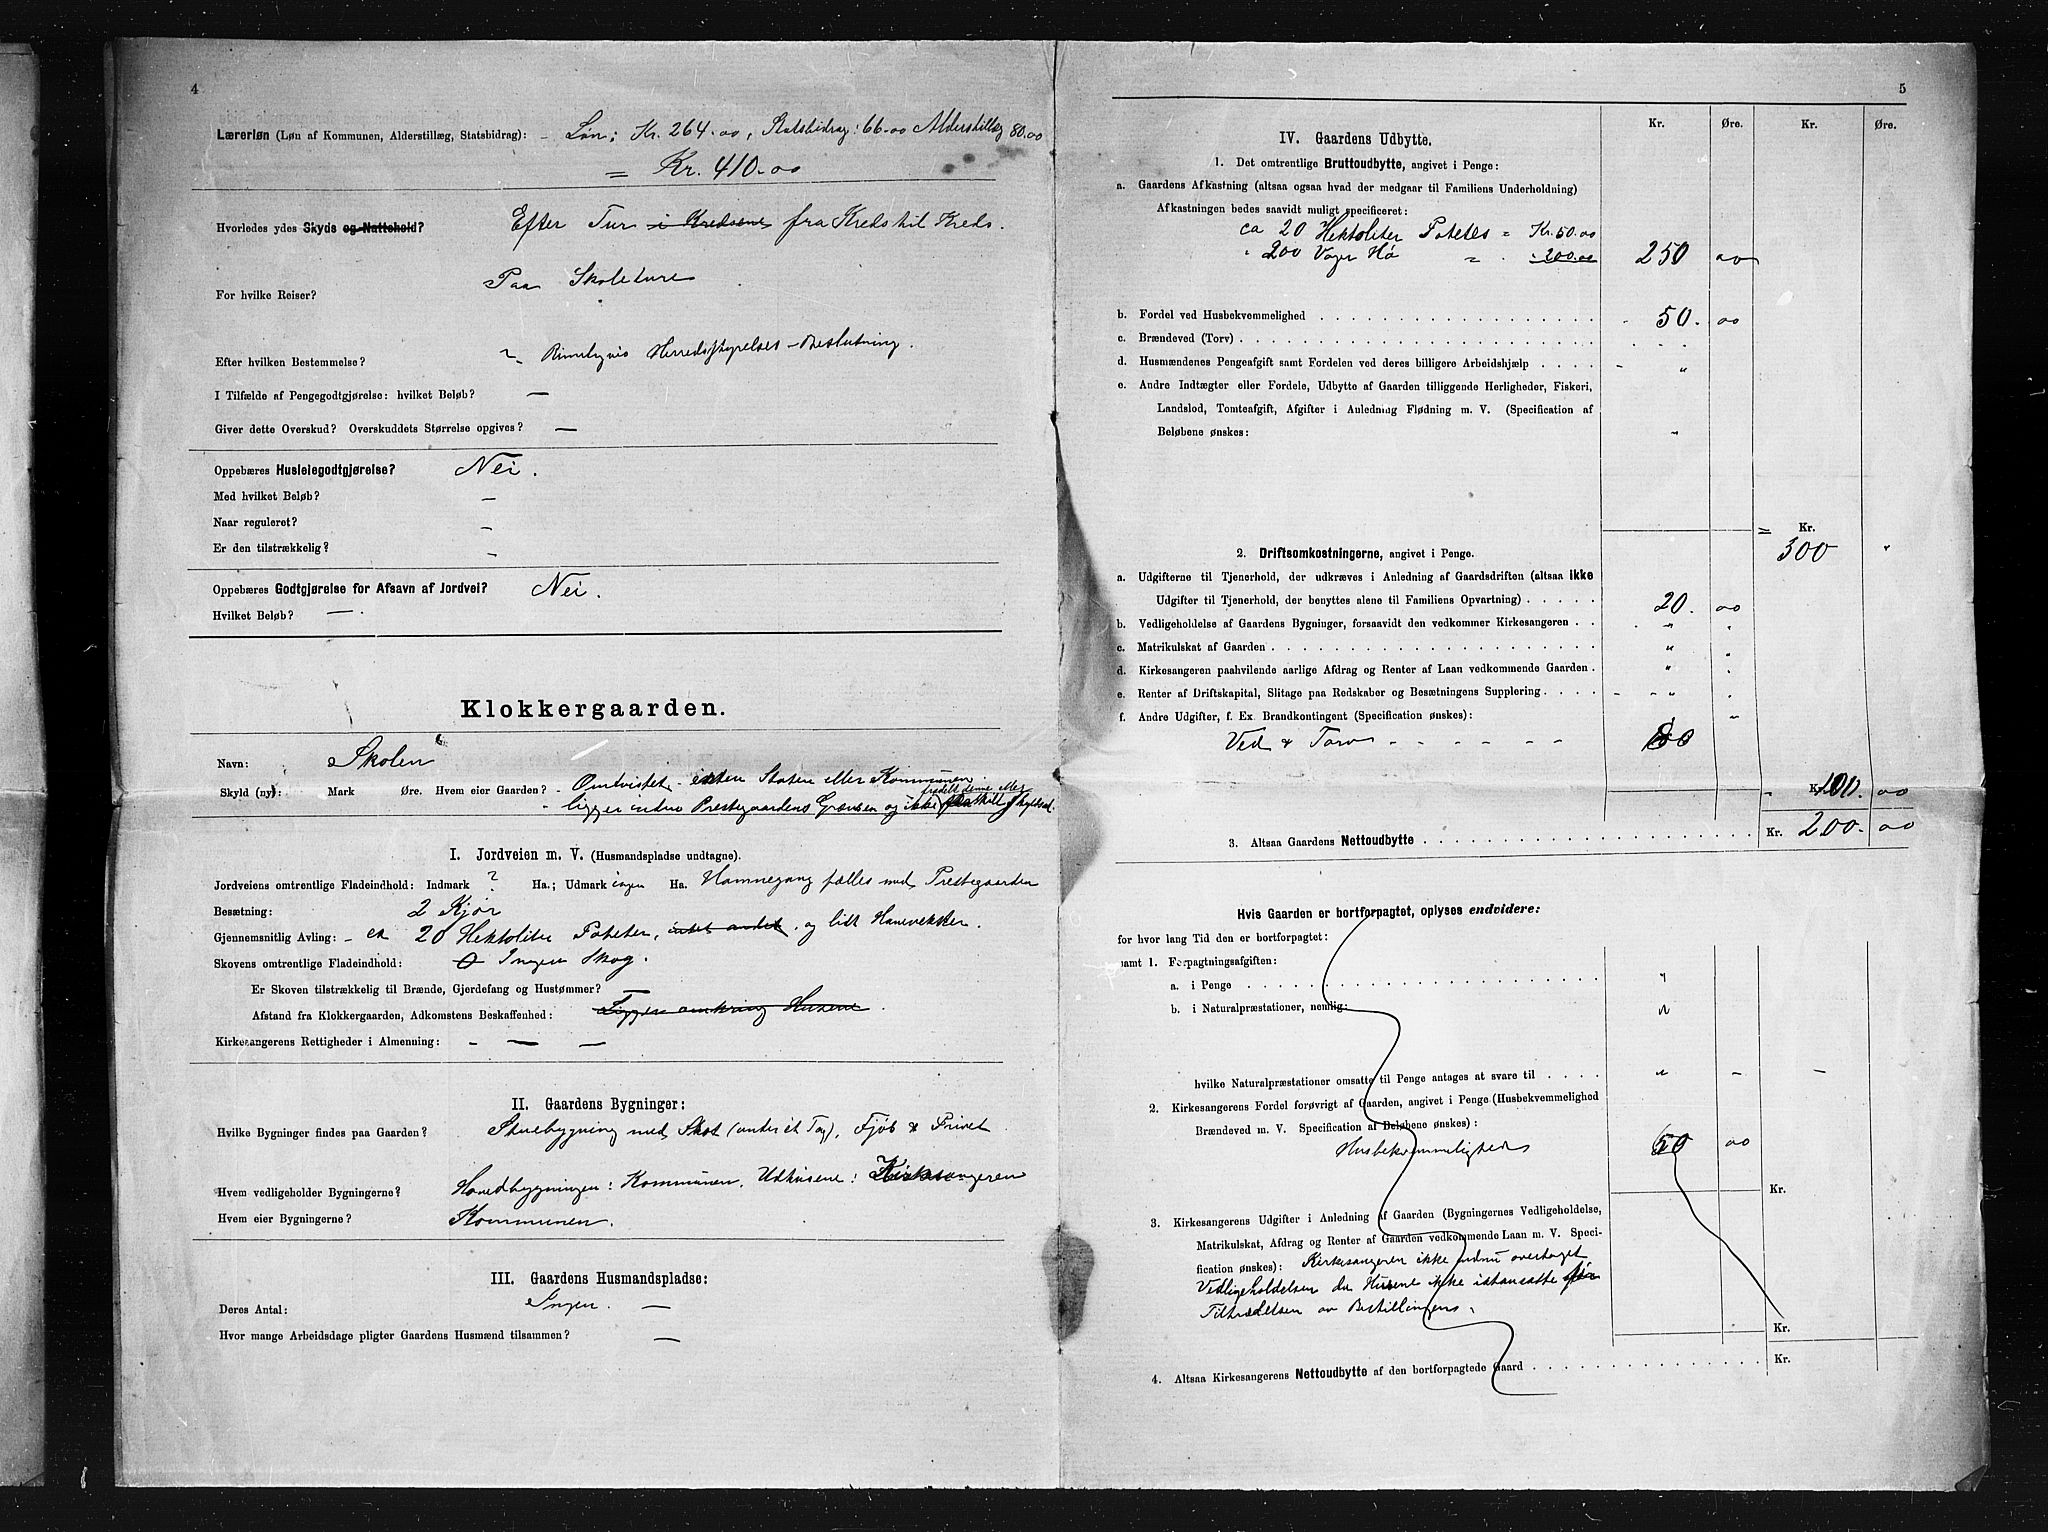 4
Lærerløn (Løn af Kommunen, Alderstillæg, Statsbidrag): - Løn; Kr. 264.00, Statsbidrag: 66.00 Alderstillæg 80.00
= Kr. 410.00
Hvorledes ydes Skyds og Nattehold? Efter Tur i Kredsene fra Kreds til Kreds.
For hvilke Reiser? Paa Skoleture
Efter hvilken Bestemmelse? Herredsstyrelses-Beslutning.
I Tilfælde af Pengegodtgjørelse: hvilket Beløb? —
Giver dette Overskud? Overskuddets Størrelse opgives? —
Oppebæres Husleiegodtgjørelse? Nei.
Med hvilket Beløb? —
Naar reguleret? -
Er den tilstrækkelig? -
Oppebæres Godtgjørelse for Afsavn af Jordvei? Nei.
Hvilket Beløb? — .
Klokkergaarden.
Navn: Skolen
Skyld (ny): Mark Øre. Hvem eier Gaarden? - Omtvistet - enten Staten eller Kommunen.
- ligger inden Prestegaardens Grændser og ikke fradelt denne eller skyldsat.
I. Jordveien m. V. (Husmandspladse undtagne).
Jordveiens omtrentlige Fladeindhold: Indmark ? Ha.; Udmark ingen Ha. Havnegang fælles med Prestegaarden
Besætning: 2 Kjør
Gjennemsnitlig Avling: - ca 20 Hektoliter Poteter, intet andet. og lidt Havevekster.
Skovens omtrentlige Fladeindhold: 0 Ingen Skog.
Er Skoven tilstrækkelig til Brænde, Gjerdefang og Hustømmer? —
Afstand fra Klokkergaarden, Adkomstens Beskaffenhed: Ligger omkring Husene.
Kirkesangerens Rettigheder i Almenning: - — —
II. Gaardens Bygninger:
Hvilke Bygninger findes paa Gaarden? Stuebygning med Skot (under et Tag), Fjøs & Privet
Hvem vedligeholder Bygningerne? Hovedbygningen: Kommunen, Udhusene: Kirkesangeren
Hvem eier Bygningerne? Kommunen.
III. Gaardens Husmandspladse:
Deres Antal: Ingen. —
Hvor mange Arbeidsdage pligter Gaardens Husmænd tilsammen? —
5
Kr. Øre. Kr. Øre.
IV. Gaardens Udbytte.
1. Det omtrentlige Bruttoudbytte, angivet i Penge:
a. Gaardens Afkastning (altsaa ogsaa hvad der medgaar til Familiens Underholdning)
Afkastningen bedes saavidt muligt specificeret:
ca 20 Hektoliter Poteter = Kr. 50.00
" 200 Voger Hø = " 200.00 250 00
b. Fordel ved Husbekvemmelighed 50. 00
c. Brændeved (Torv)
d. Husmændenes Pengeafgift samt Fordelen ved deres billigere Arbeidshjælp "
e. Andre Indtægter eller Fordele, Udbytte af Gaarden tilliggende Herligheder, Fiskeri,
Landslod, Tomteafgift, Afgifter i Anledning Flødning m. V. (Specification af
Beløbene ønskes: "
= Kr. 300 "
2. Driftsomkostningerne, angivet i Penge.
a. Udgifterne til Tjenerhold, der udkræves i Anledning af Gaardsdriften (altsaa ikke
Udgifter til Tjenerhold, der benyttes alene til Familiens Opvartning) 20. 00
b. Vedligeholdelse af Gaardens Bygninger, forsaavidt den vedkommer Kirkesangeren "
c. Matrikulskat af Gaarden "
d. Kirkesangeren paahvilende aarlige Afdrag og Renter af Laan vedkommende Gaarden "
e. Renter af Driftskapital, Slitage paa Redskaber og Besætningens Supplering "
f. Andre Udgifter, f. Ex. Brandkontingent (Specification ønskes):
Ved & Torv - - - - - 80
Kr. 100. 00
3. Altsaa Gaardens Nettoudbytte Kr. 200. 00
Hvis Gaarden er bortforpagtet, oplyses endvidere:
for hvor lang Tid den er bortforpagtet:
samt 1. Forpagtningsafgiften:
a. i Penge "
b. i Naturalpræstationer, nemlig: "
hvilke Naturalpræstationer omsatte til Penge antages at svare til " - -
2. Kirkesangerens Fordel forøvrigt af Gaarden, angivet i Penge (Husbekvemmelighed
Brændeved m. V. Specification af Beløbene ønskes):
Husbekvemmelighed 50 00
Kr.
3. Kirkesangerens Udgifter i Anledning af Gaarden (Bygningernes Vedligeholdelse,
Matrikulskat, Afdrag og Renter af Gaarden vedkommende Laan m. V. Speci-
fication ønskes): Kirkesangeren ikke endnu overtaget
Vedligeholdelsen da Husene ikke istandsatte før
Tiltrædelsen av Bestillingen.
Kr.
4. Altsaa Kirkesangerens Nettoudbytte af den bortforpagtede Gaard Kr.